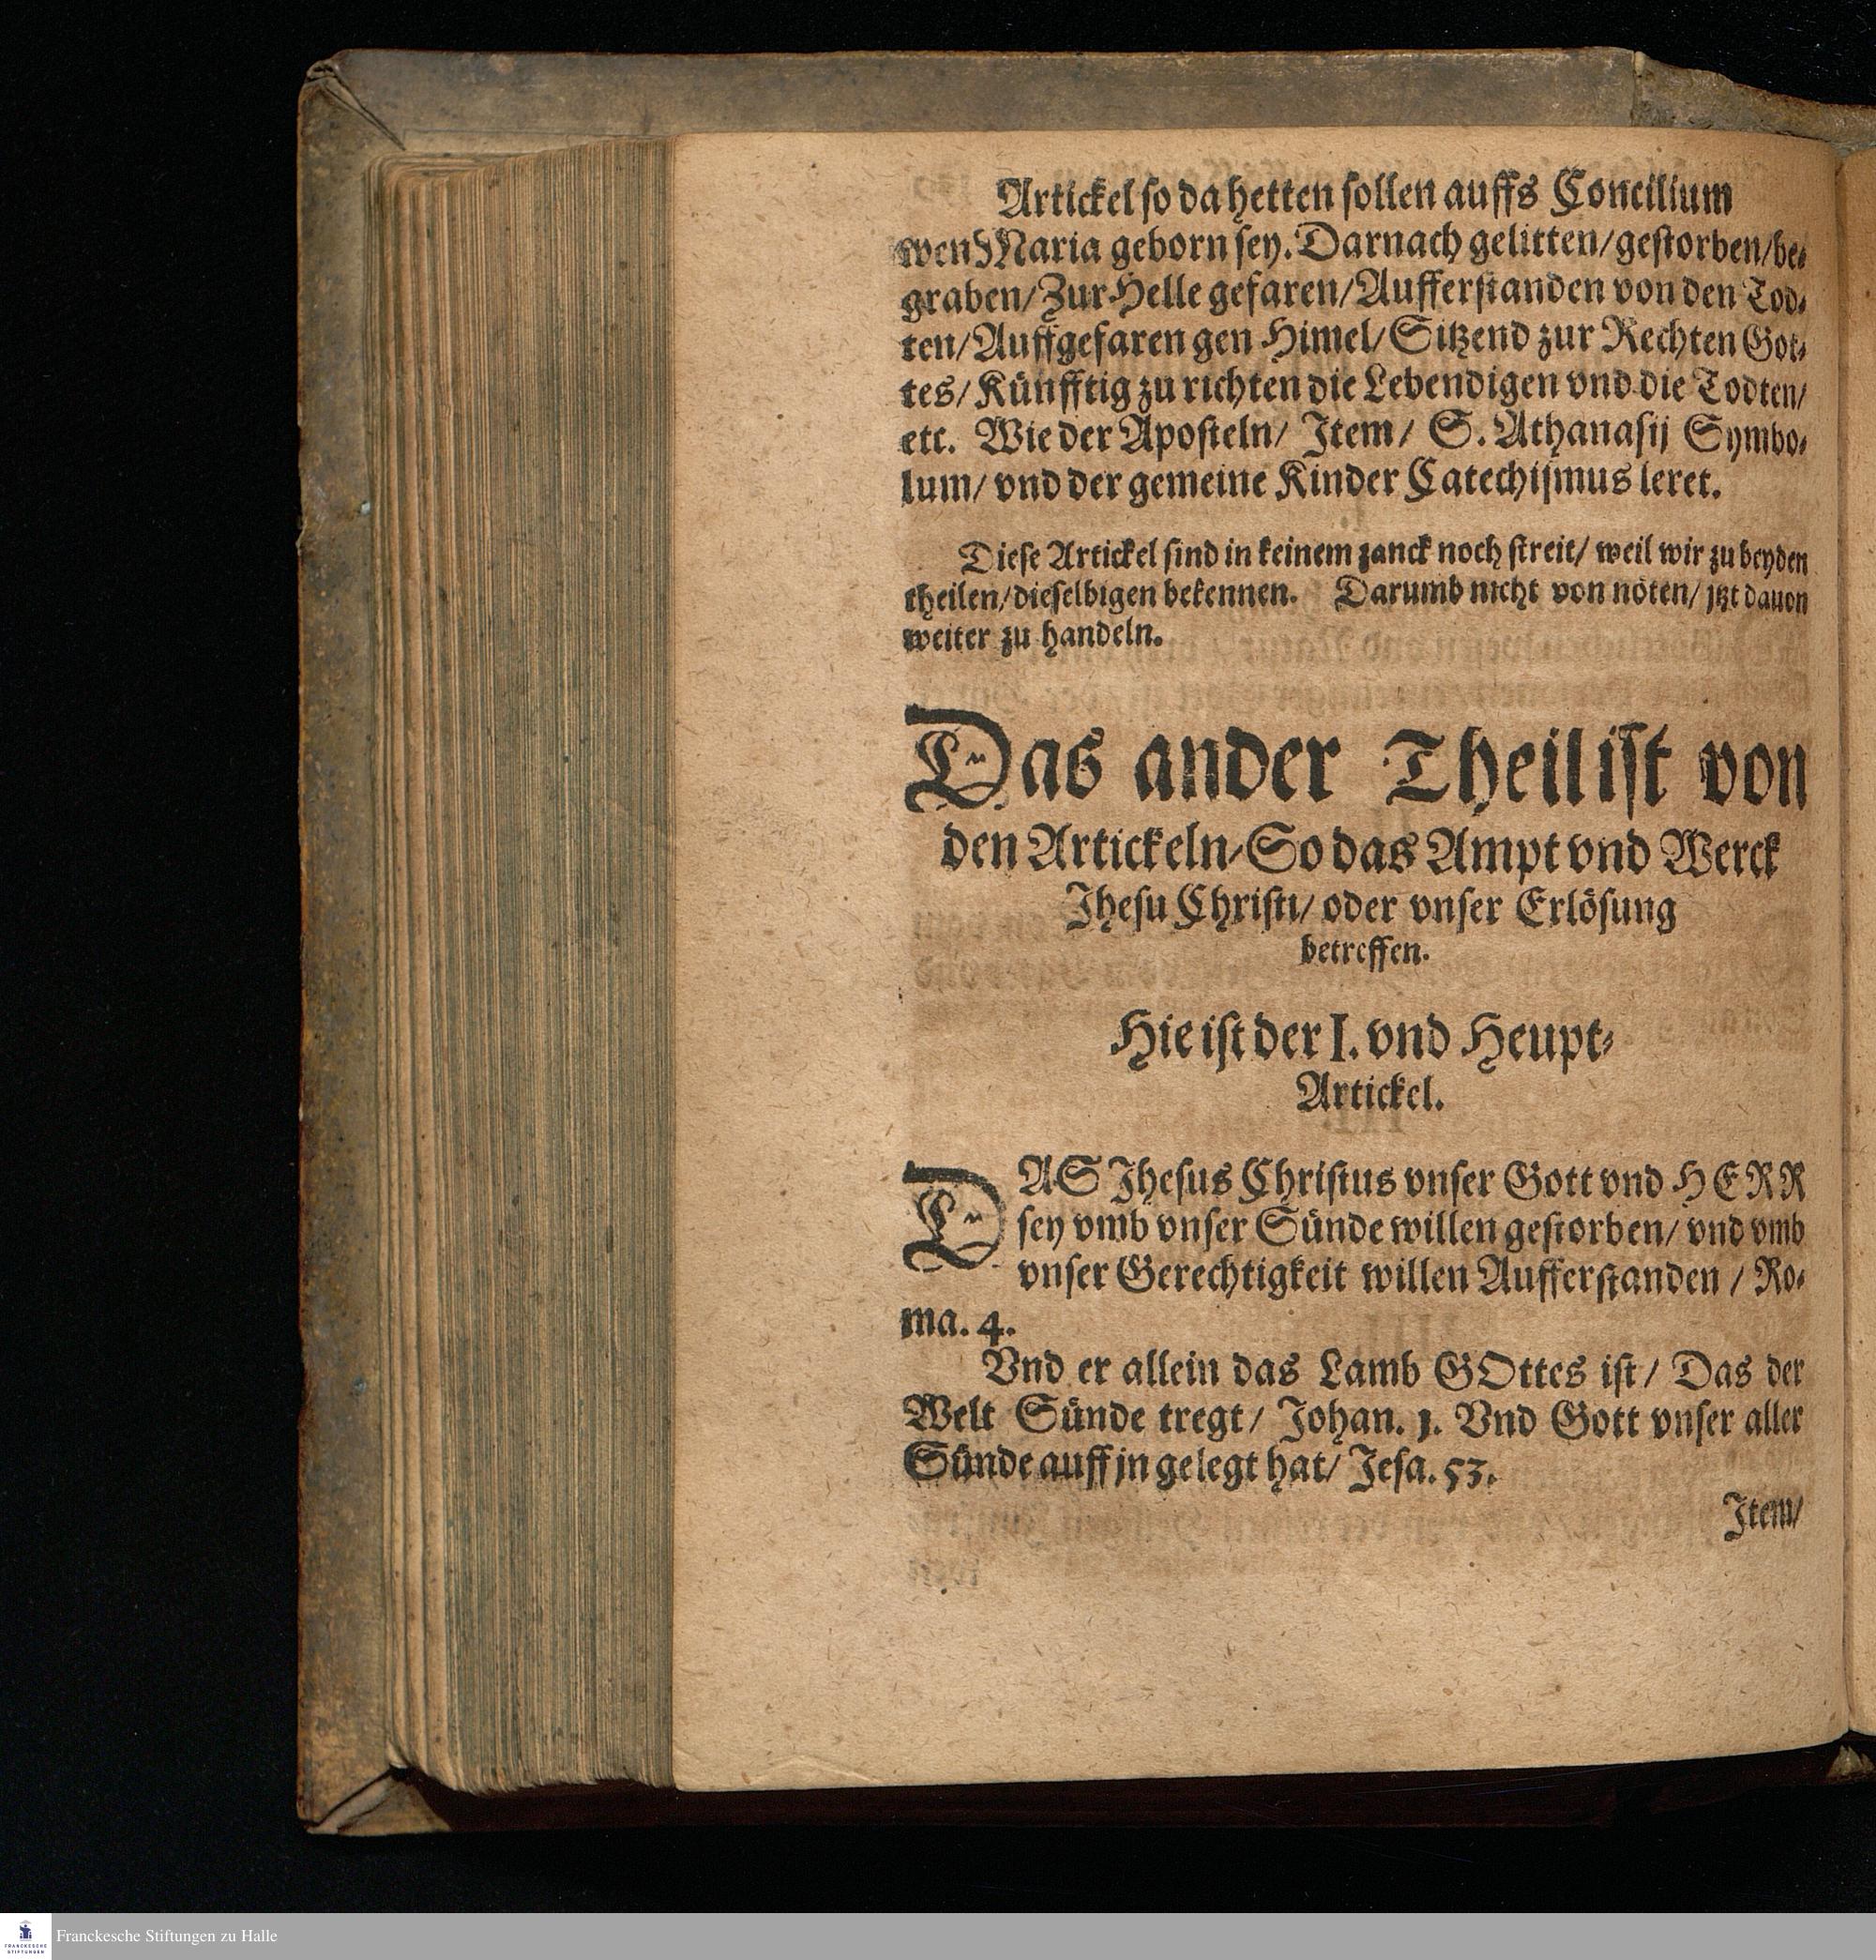 Artickel so da hetten sollen auffs Concilium
wen Maria geborn sey. Darnach gelitten/gestorben/be⸗
graben/Zur Helle gefaren/Aufferstanden von den Tod⸗
ten/Auffgefaren gen Himel/Sitzend zur Rechten Got⸗
tes/Künfftig zu richten die Lebendigen vnd die Todten/
etc. Wie der Aposteln/ Item/ S. Athanasij Symbo⸗
lum/ vnd der gemeine Kinder Catechismus leret.
Diese Artickel sind in keinem zanck noch streit/ weil wir zu beyden
theilen/dieselbigen bekennen. Darumb nicht von nöten/ jtzt dauon
weiter zu handeln.
Das ander Theil ist von
den Artickeln/So das Ampt vnd Werck
Jhesu Christi/ oder vnser Erlösung
betreffen.
Hie ist der I. vnd Heupt⸗
Artickel.
DAS Jhesus Christus vnser Gott vnd HERR
sey vmb vnser Sünde willen gestorben/ vnd vmb
vnser Gerechtigkeit willen Aufferstanden / Ro⸗
ma. 4.
Vnd er allein das Lamb GOttes ist/ Das der
Welt Sünde tregt/ Johan. 1. Vnd Gott vnser aller
Sünde auff jn gelegt hat/ Jesa. 53.
Item/
FRANCKESCHE
STIFTUNGEN
Franckesche Stiftungen zu Halle